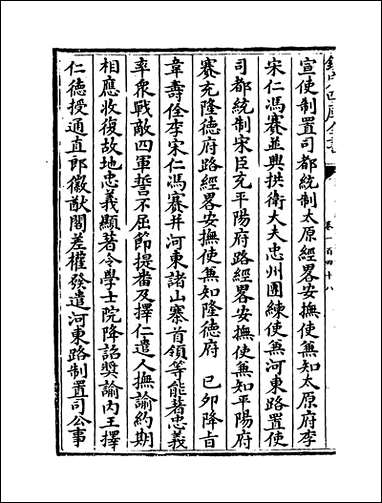 欽定四庫全書
卷一百四十八
宣使制置司都統制太原經畧安撫使兼知太原府李
宋仁馮賽並興拱衛大夫忠州團練使兼河東路置使
司都統制宋臣充平陽府路經畧安撫使兼知平陽府
賽充隆德府路經畧安撫使兼知隆德府　己卯降㫖
韋壽佺李宋仁馮賽并河東諸山寨首領等能著忠義
率衆戰敵四軍誓不屈節提畨及擇仁遣人撫諭約期
相應收復故地忠義顯著令學士院降詔奬諭内王擇
仁徳授通直郎徽猷閣差權發遣河東路制置司公事